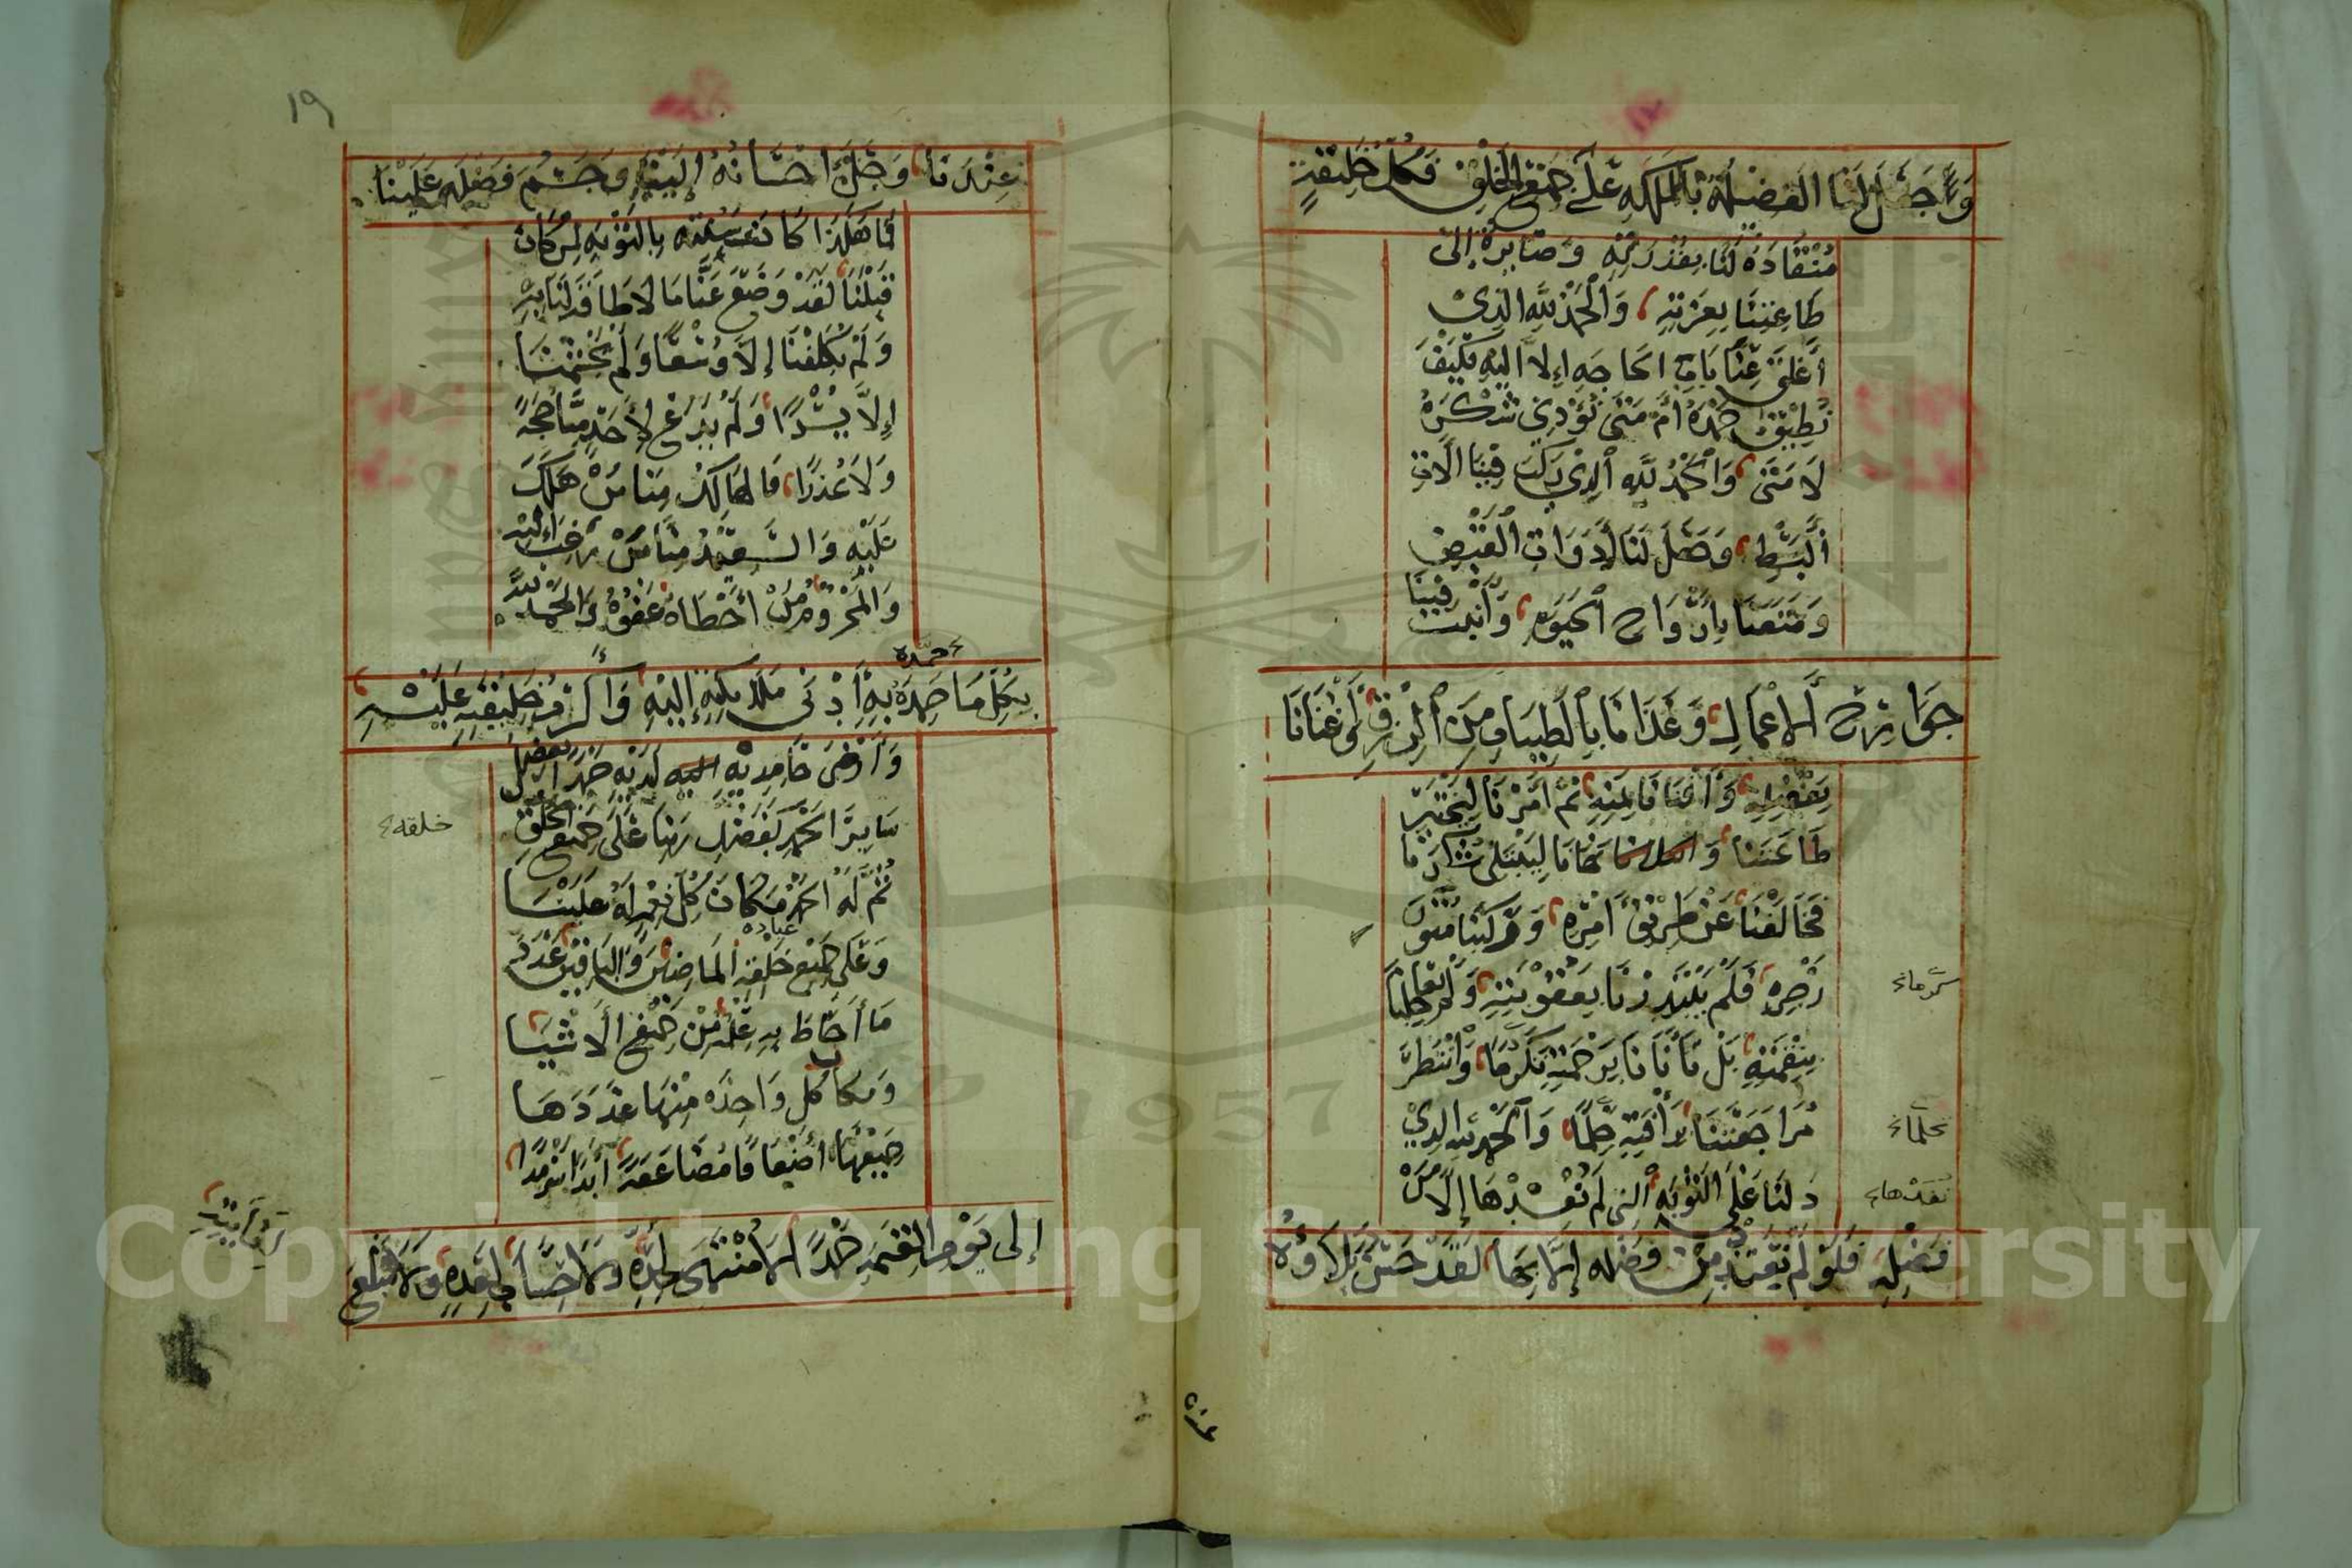 وَجَعَلَ لَنَا الفَضِيلَةَ بِالمَلَكَةِ عَلَى جَمِيعِ الخَلْقِ فَكُلُّ خَلِيقَتِهِ
مُنْقَادَةٌ لَنَا بِقُدْرَتِهِ وَصَايِرَةٌ إِلَى
طَاعَتِنَا بِعِزَّتِهِ وَالْحَمْدُ لِلَّهِ الَّذِي
أَغْلَقَ عَنَّا بَابَ الحَاجَةِ إِلاَّ إِلَيْهِ فَكَيْفَ
نُطِيقُ حَمْدَهُ أَمْ مَتَى نُؤَدِّي شُكْرَهُ
لاَ مَتَى وَالْحَمْدُ لِلَّهِ الَّذِي رَكَّبَ فِينَا آلَاتِ
الْبَسْطِ وَجَعَلَ لَنَا أَدَوَاتِ الْقَبْضِ
وَمَتَّعَنَا بِأَرْوَاحِ الْحَيَوةِ وَأَثْبَتَ فِينَا
جَوَارِحَ الأَعْمَالِ وَغَذَّانَا بِالطَّيِّبَاتِ مِنَ الرِّزْقِ وَأَغْنَانَا
بِفَضْلِهِ وَأَقْنَانَا بِمَنِّهِ ثُمَّ أَمَرَنَا لِيَخْتَبِرَ
طَاعَتَنَا وَنَهَانَا لِيَبْتَلِيَ شُكْرَنَا
فَخَالَفْنَا عَنْ طَرِيقِ أَمْرِهِ وَرَكِبْنَا مُتُونَ
زَجْرِهِ فَلَمْ يَبْتَدِرْنَا بِعُقُوبَتِهِ وَلَمْ يُعَاجِلْنَا
بِنِقْمَتِهِ بَلْ تَأَنَّانَا بِرَحْمَتِهِ تَكَرُّمًا وَانْتَظَرَ
مُرَاجَعَتَنَا بِرَأْفَتِهِ حِلْمًا وَالْحَمْدُ لِلَّهِ الَّذِي
دَلَّنَا عَلَى التَّوْبَةِ الَّتِي لَمْ نُفِدْهَا إِلاَّ مِنْ
فَضْلِهِ فَلَوْ لَمْ نَعْتَدِدْ مِنْ فَضْلِهِ إِلَّا بِهَا لَقَدْ حَسُنَ بَلَاؤُهُ
١٩
عِنْدَنَا وَجَلَّ إِحْسَانُهُ إِلَيْنَا وَجَسُمَ فَضْلُهُ عَلَيْنَا
فَمَا هَكَذَا كَانَتْ سُنَّتُهُ بِالتَّوْبَةِ لِمَنْ كَانَ
قَبْلَنَا لَقَدْ وَضَعَ عَنَّا مَا لاَ طَاقَةَ لَنَا بِهِ
وَلَمْ يُكَلِّفْنَا إِلاَّ وُسْعًا وَلَمْ يُجَشِّمْنَا
إِلاَّ يُسْرًا وَلَمْ يَدَعْ لِأَحَدٍ مِنَّا حُجَّةً
وَلَا عُذْرًا فَالهَالِكُ مِنَّا مَنْ هَلَكَ
عَلَيْهِ وَالسَّعِيدُ مِنَّا مَنْ رَغِبَ إِلَيْهِ
وَالحَمْدُ لِلَّهِ
حمده
بِكُلِّ مَا حَمِدَهُ بِهِ أَدْنَى مَلَائِكَتِهِ إِلَيْهِ وَأَكْرَمُ خَلِيقَتِهِ عَلَيْهِ
وَأَرْضَى حَامِدِيهِ لَدَيْهِ حَمْدًا يَفْضُلُ
سَايِرَ الحَمْدِ كَفَضْلِ رَبِّنَا عَلَى جَمِيعِ خلقه
ثُمَّ لَهُ الحَمْدُ مَكَانَ كُلِّ نِعْمَةٍ لَهُ عَلَيْنَا
وَعَلَى جَمِيعِ عباده المَاضِينَ وَالبَاقِينَ عَدَدَ
مَا أَحَاطَ بِهِ عِلْمُهُ مِنْ جَمِيعِ الأَشْيَا
وَمَكَانَ كُلِّ وَاحِدَةٍ مِنْهَا عَدَدَهَا
أَضْعَافًا مُضَاعَفَةً أَبَدًا سَرْمَدًا
إِلَى يَوْمِ القِيمَةِ حَمْدًا لَا مُنْتَهَى لِحَدِّهِ وَلاَ حِسَابَ لِعَدَدِهِ وَلاَ مَبْلَغَ
Copyright © King Saud University
1957